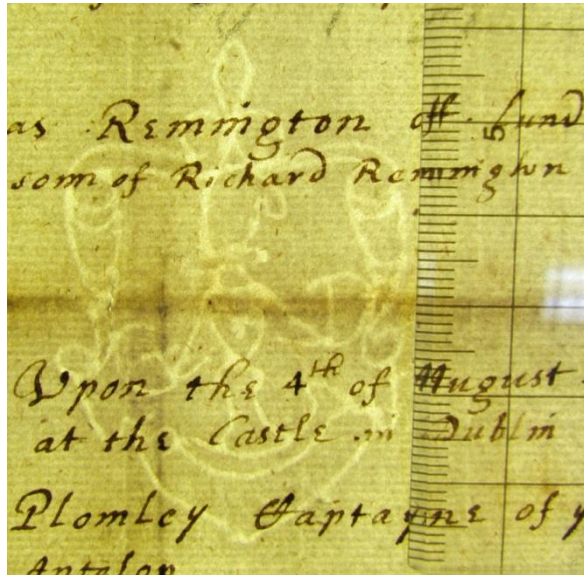 as Remnington off Lund
5
sonn of Richard Remnington
Upon the 4th of August
at the Castle in Dublin
Plomley Captayne of y
Antelop